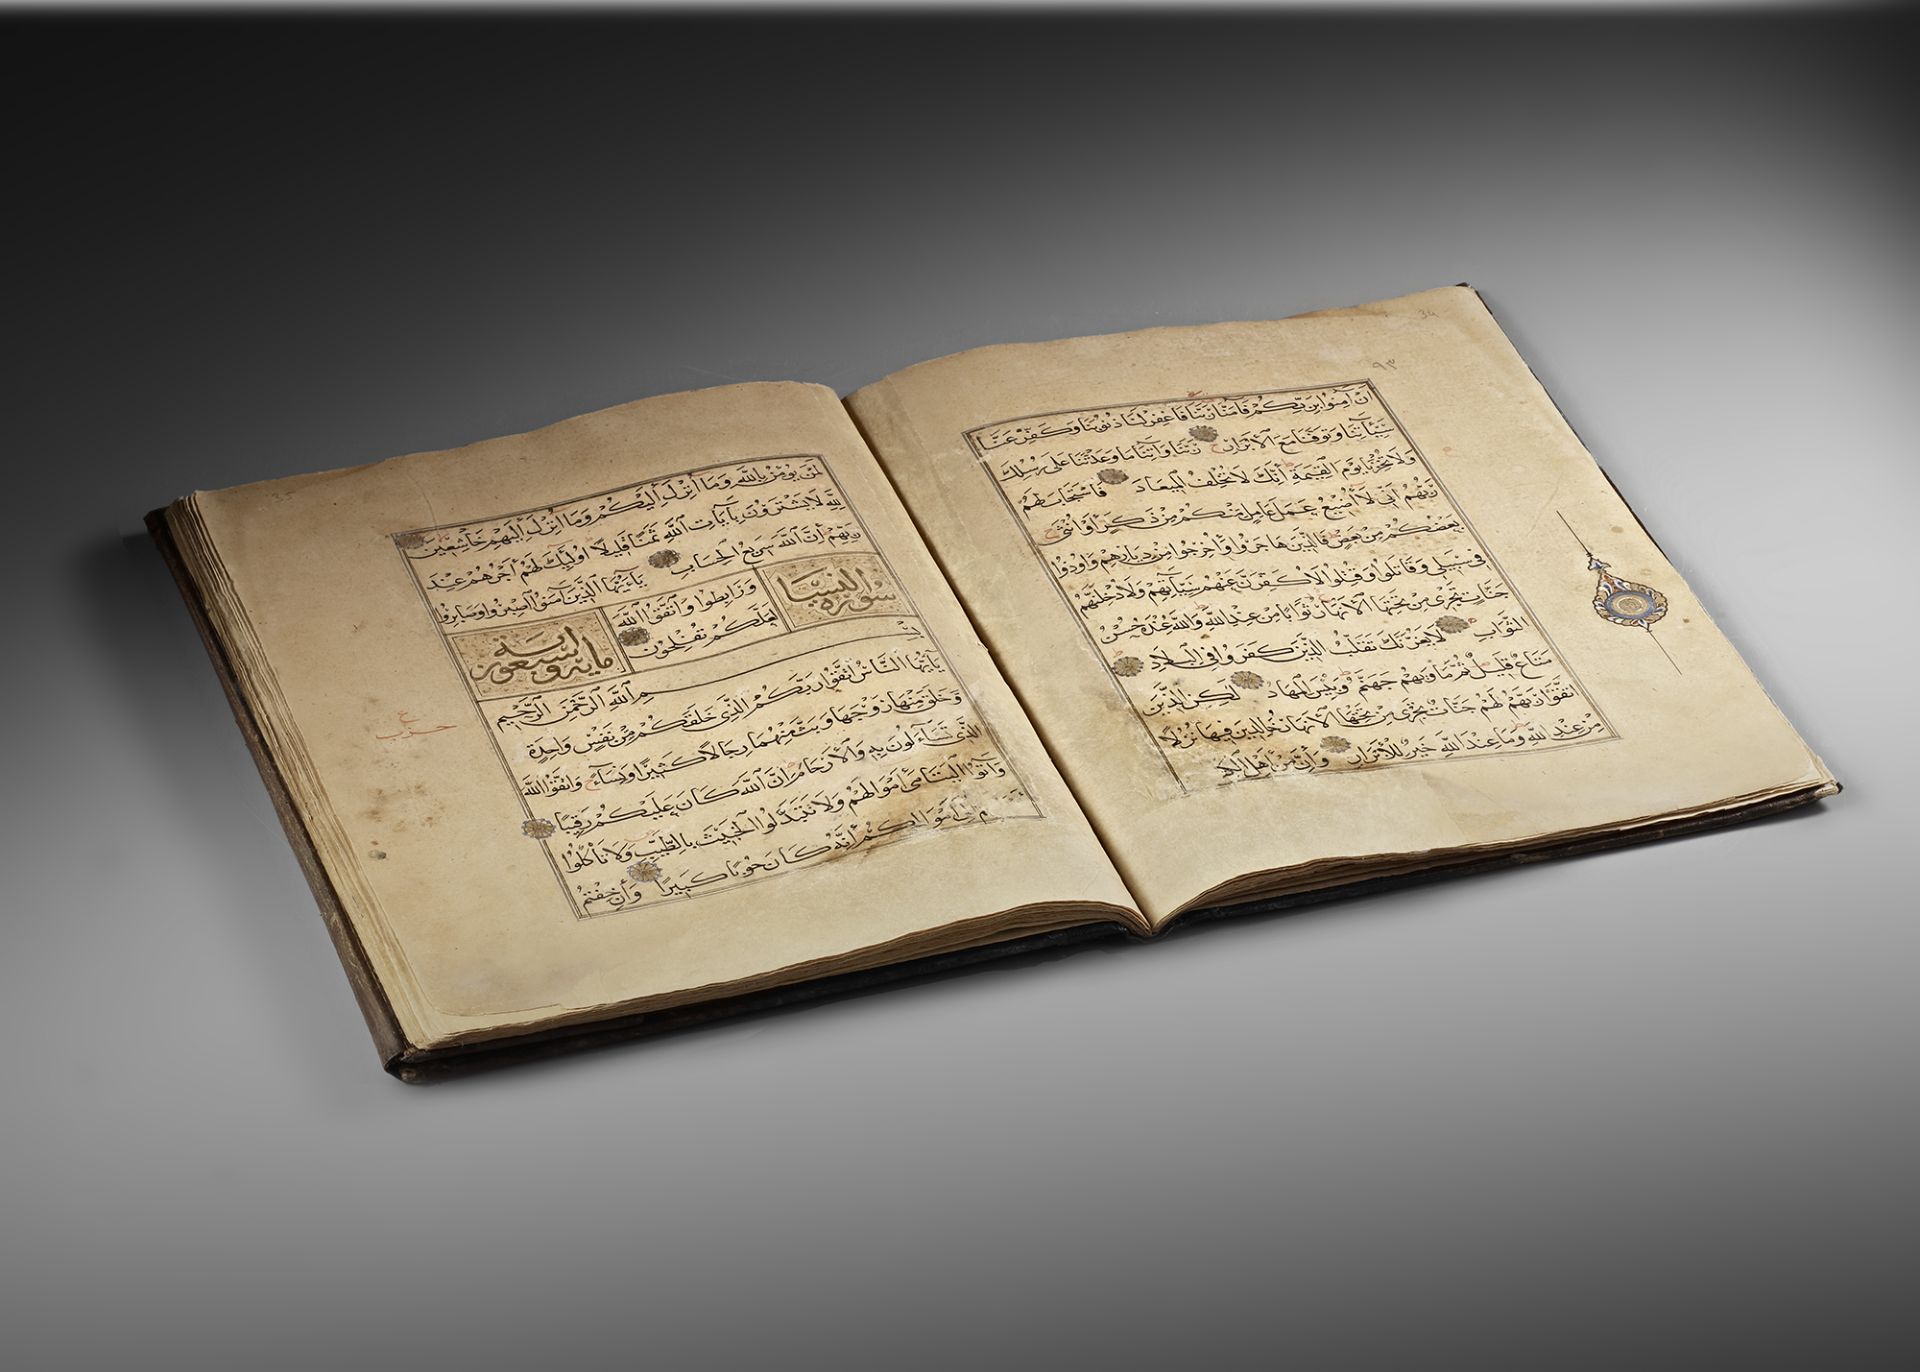 34
٩٣
أَنْ آمِنُوا بِرَبِّكُمْ فَآمَنَّا رَبَّنَا فَاغْفِرْ لَنَا ذُنُوبَنَا وَكَفِّرْ عَنَّا
سَيِّئَاتِنَا وَتَوَفَّنَا مَعَ الْأَبْرَارِ رَبَّنَا وَآتِنَا مَا وَعَدْتَنَا عَلَى رُسُلِكَ
وَلَا تُخْزِنَا يَوْمَ الْقِيٰمَةِ إِنَّكَ لَا تُخْلِفُ الْمِيعَادَ فَاسْتَجَابَ لَهُمْ
رَبُّهُمْ أَنِّي لَا أُضِيعُ عَمَلَ عَامِلٍ مِنْكُمْ مِنْ ذَكَرٍ أَوْ أُنْثَى
بَعْضُكُمْ مِنْ بَعْضٍ فَالَّذِينَ هَاجَرُوا وَأُخْرِجُوا مِنْ دِيَارِهِمْ وَأُوذُوا
فِي سَبِيلِي وَقَاتَلُوا وَقُتِلُوا لَأُكَفِّرَنَّ عَنْهُمْ سَيِّئَاتِهِمْ وَلَأُدْخِلَنَّهُمْ
جَنَّاتٍ تَجْرِي مِنْ تَحْتِهَا الْأَنْهَارُ ثَوَابًا مِنْ عِنْدِ اللَّهِ وَاللَّهُ عِنْدَهُ حُسْنُ
الثَّوَابِ لَا يَغُرَّنَّكَ تَقَلُّبُ الَّذِينَ كَفَرُوا فِي الْبِلَادِ
مَتَاعٌ قَلِيلٌ ثُمَّ مَأْوٰيهُمْ جَهَنَّمُ وَبِئْسَ الْمِهَادُ لَكِنِ الَّذِينَ
اتَّقَوْا رَبَّهُمْ لَهُمْ جَنَّاتٌ تَجْرِي مِنْ تَحْتِهَا الْأَنْهَارُ خَالِدِينَ فِيهَا نُزُلًا
مِنْ عِنْدِ اللَّهِ وَمَا عِنْدَ اللَّهِ خَيْرٌ لِلْأَبْرَارِ وَإِنَّ مِنْ أَهْلِ
35
لَمَنْ يُؤْمِنُ بِاللَّهِ وَمَا أُنْزِلَ إِلَيْكُمْ وَمَا أُنْزِلَ إِلَيْهِمْ خَاشِعِينَ
لِلَّهِ لَا يَشْتَرُونَ بِآيَاتِ اللَّهِ ثَمَنًا قَلِيلًا أُولَئِكَ لَهُمْ أَجْرُهُمْ عِنْدَ
رَبِّهِمْ إِنَّ اللَّهَ سَرِيعُ الْحِسَابِ يَا أَيُّهَا الَّذِينَ آمَنُوا اصْبِرُوا وَصَابِرُوا
سورة النسا
وَرَابِطُوا وَاتَّقُوا اللَّهَ
لَعَلَّكُمْ تُفْلِحُونَ
مائة وسبعون اية
بِسْمِ اللَّهِ الرَّحْمَنِ الرَّحِيمِ
يَا أَيُّهَا النَّاسُ اتَّقُوا رَبَّكُمُ الَّذِي خَلَقَكُمْ مِنْ نَفْسٍ وَاحِدَةٍ
وَخَلَقَ مِنْهَا زَوْجَهَا وَبَثَّ مِنْهُمَا رِجَالًا كَثِيرًا وَنِسَاءً وَاتَّقُوا اللَّهَ
الَّذِي تَسَاءَلُونَ بِهِ وَالْأَرْحَامَ إِنَّ اللَّهَ كَانَ عَلَيْكُمْ رَقِيبًا
وَآتُوا الْيَتَامَى أَمْوَالَهُمْ وَلَا تَتَبَدَّلُوا الْخَبِيثَ بِالطَّيِّبِ وَلَا تَأْكُلُوا
أَمْوَالِكُمْ إِنَّهُ كَانَ حُوبًا كَبِيرًا وَإِنْ خِفْتُمْ
حزب